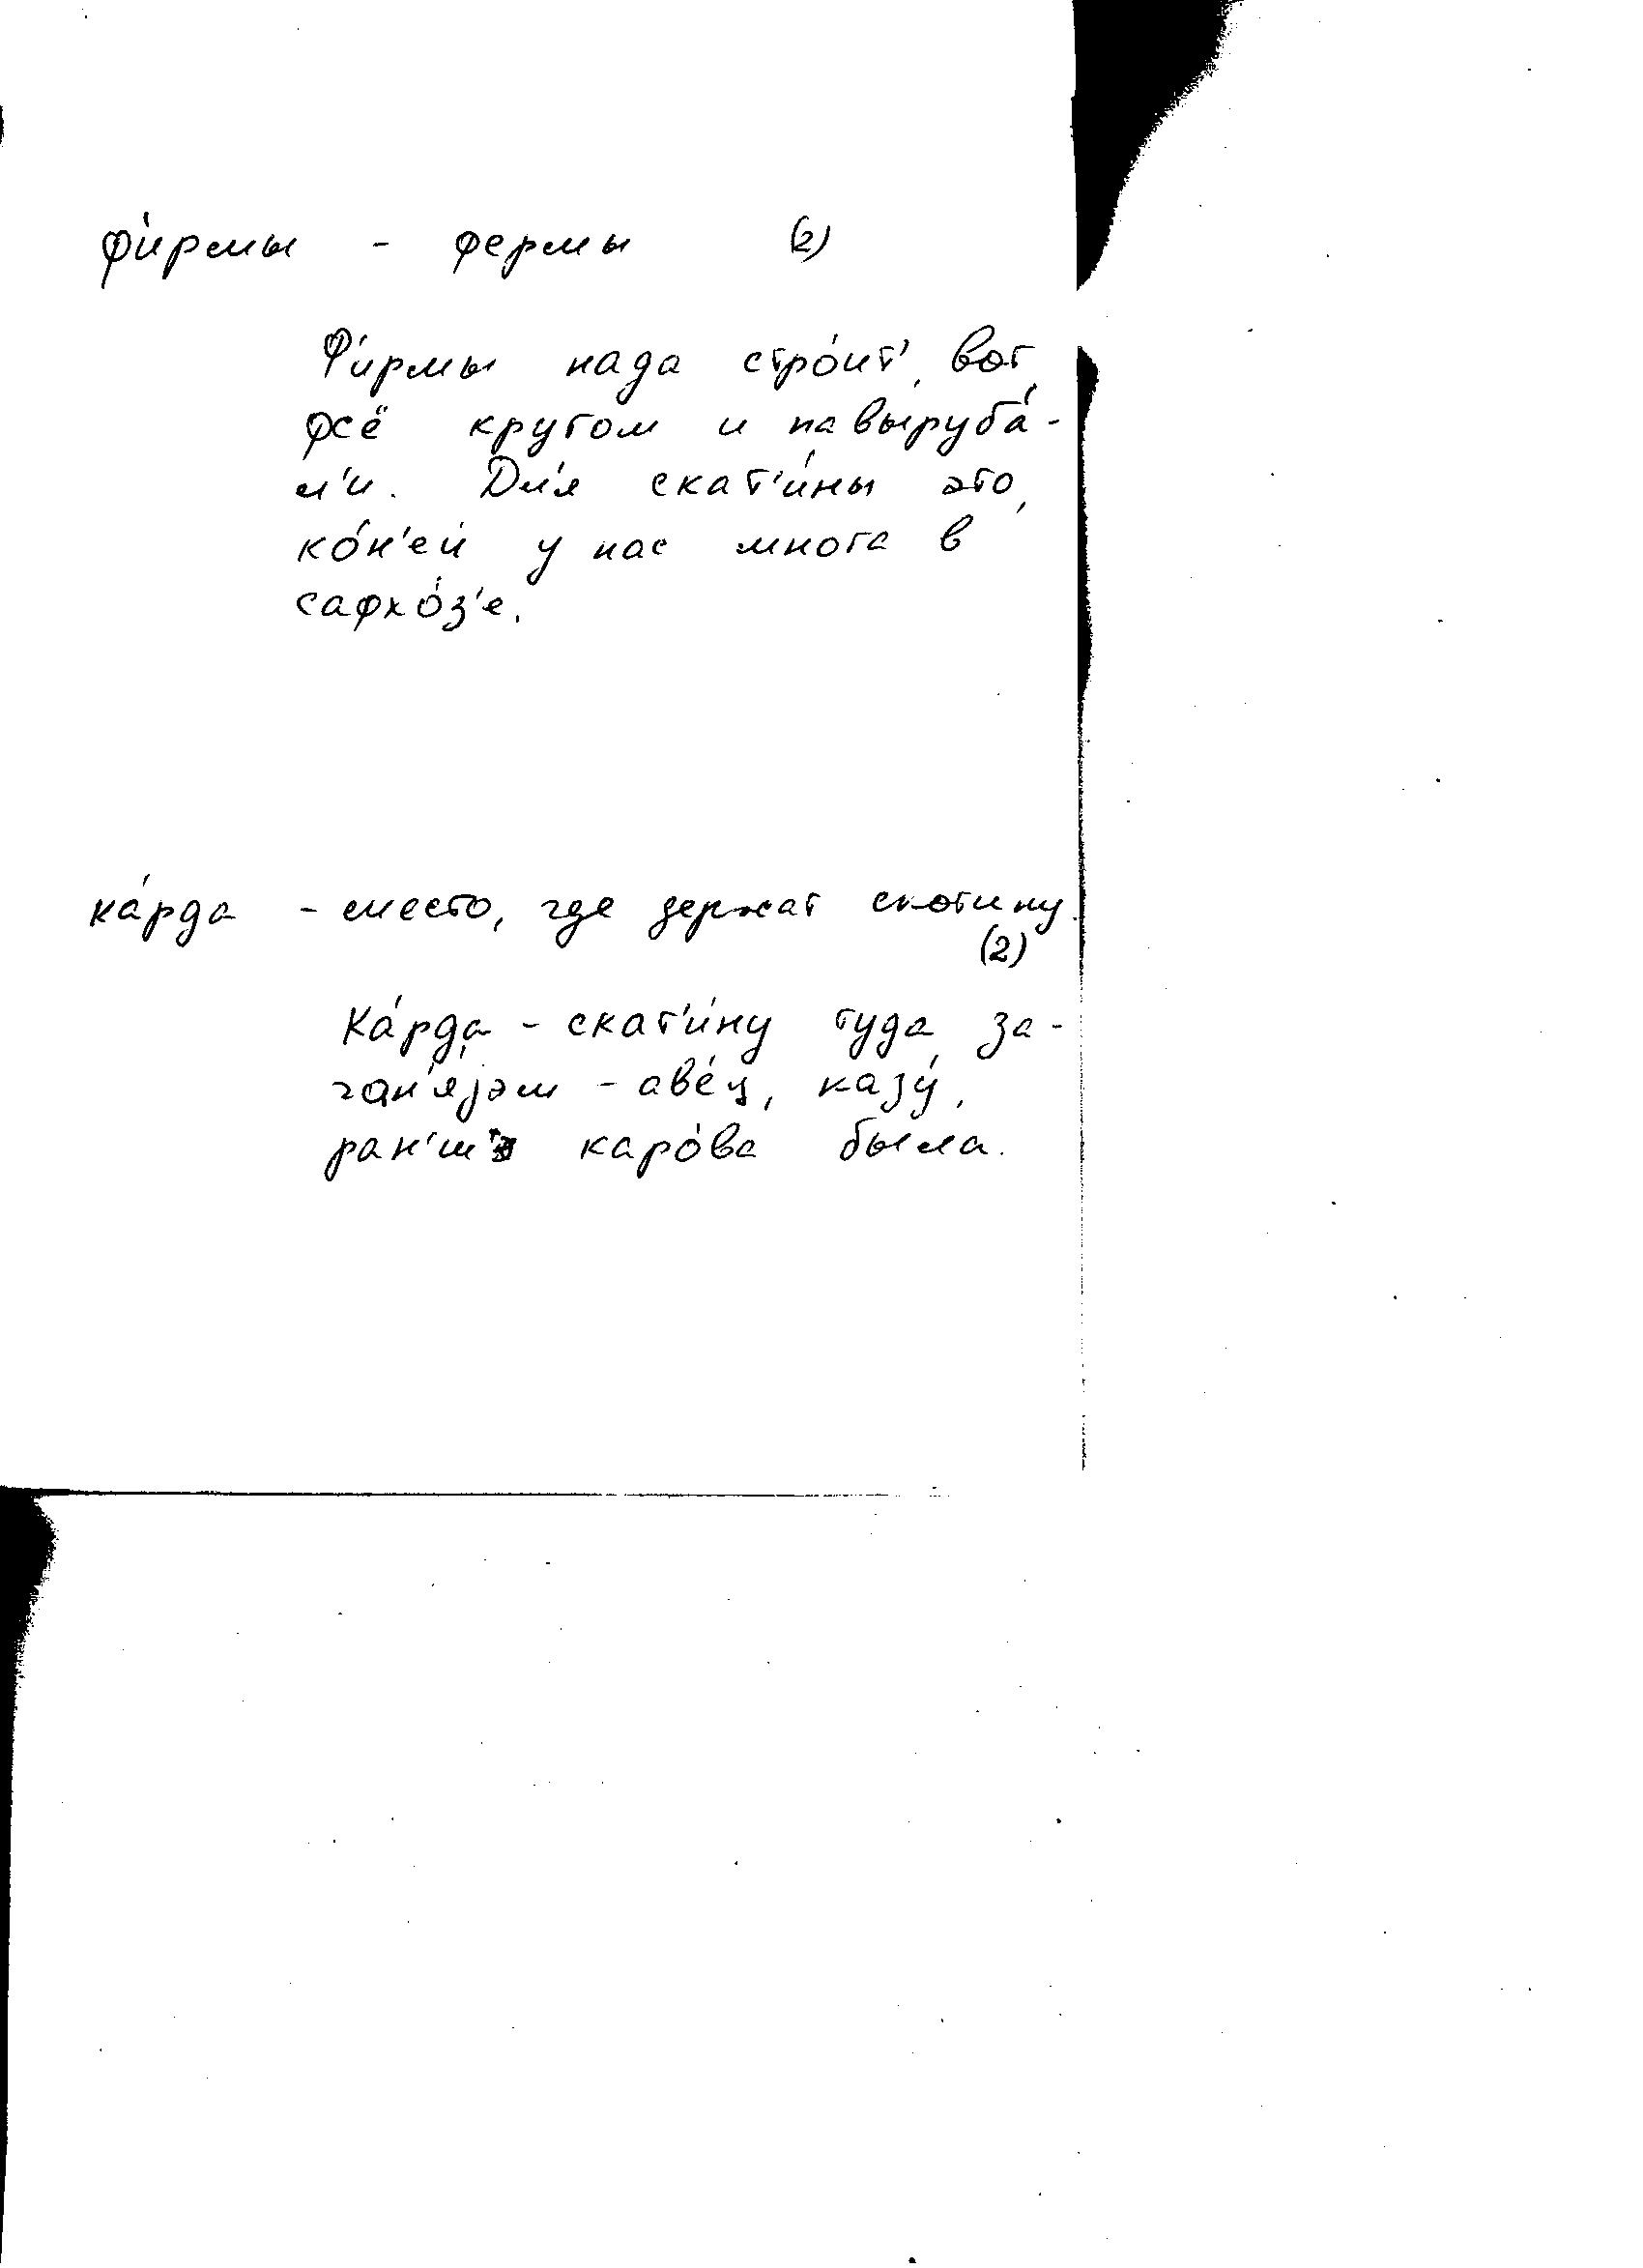 фи́рмы - фермы (2)
Фи́рмы нада стро́ит', вот,
фсё кругом и павыруба́-
л'и. Дл'я скат'и́ны это,
ко́н'ей у нас многа в
сафхо́з'е.
ка́рда - место, где держат скотину.
(2)
Ка́рда - скат'и́ну туда за-
ган'я́jэш - аве́ц, казу́,
ран'шэ каро́ва была.